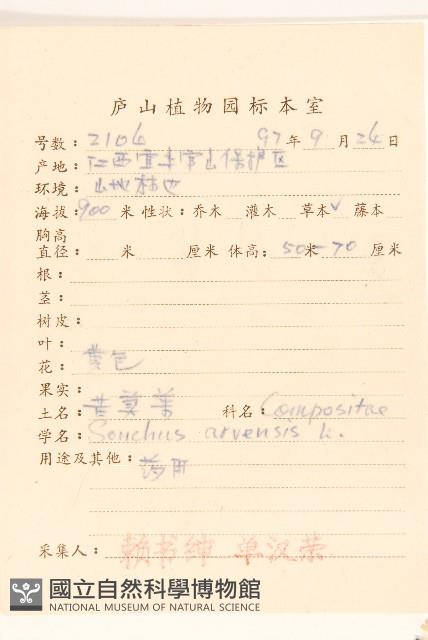 庐山植物园标本室
号数：2104 97年9月24日
产地：江西宜丰官山保护区
环境：山地林边
海拔：900米 性状：乔木 灌木 草本✓ 藤本
胸高
直径： 米 厘米 体高：50米-70厘米
根：
茎：
树皮：
叶：
花：黄色
果实：
土名：苦荬菜 科名：Compositae
学名：Sonchus arvensis L.
用途及其他：药用
采集人：赖书绅 单汉荣
國立自然科學博物館
NATIONAL MUSEUM OF NATURAL SCIENCE